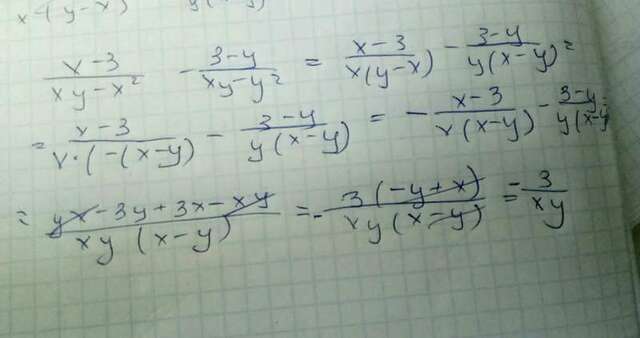 x-(y-x) y(x-y)
x-3/(xy-x²) - 3-y/(xy-y²) = x-3/(x(y-x)) - 3-y/(y(x-y)) =
= x-3/(x·(-(x-y)) - 3-y/(y(x-y)) = - x-3/(x(x-y)) - 3-y/(y(x-y)
= yx-3y+3x-xy/(xy(x-y)) = - 3(-y+x)/(xy(x-y)) = -3/(xy)